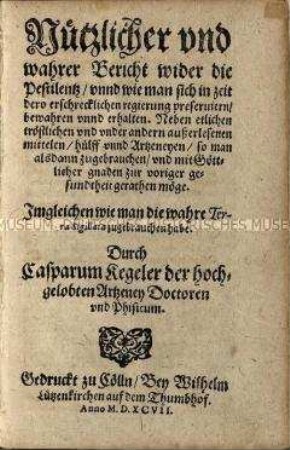 Nützlicher vnd
wahrer Bericht wider die
Pestilentz / vnnd wie man sich in zeit
dero erschrecklichen regierung preseruirn /
bewahren vnnd erhalten. Neben etlichen
tröstlichen vnd vnder andern außerlesenen
mittelen / hülff vnnd Artzeneyen / so man
alsdann zugebrauchen / vnd mit Gött-
licher gnaden zur voriger ge-
sundtheit gerathen möge.
Imgleichen wie man die wahre Ter-
ra Sigillata zugebrauchen habe.
Durch
Casparum Kegeler der hoch-
gelobten Artzeney Doctoren
vnd Phisicum.
Gedruckt zu Cölln / Bey Wilhelm
Lützenkirchen auf dem Thumbhof.
Anno M. D. XCVII.